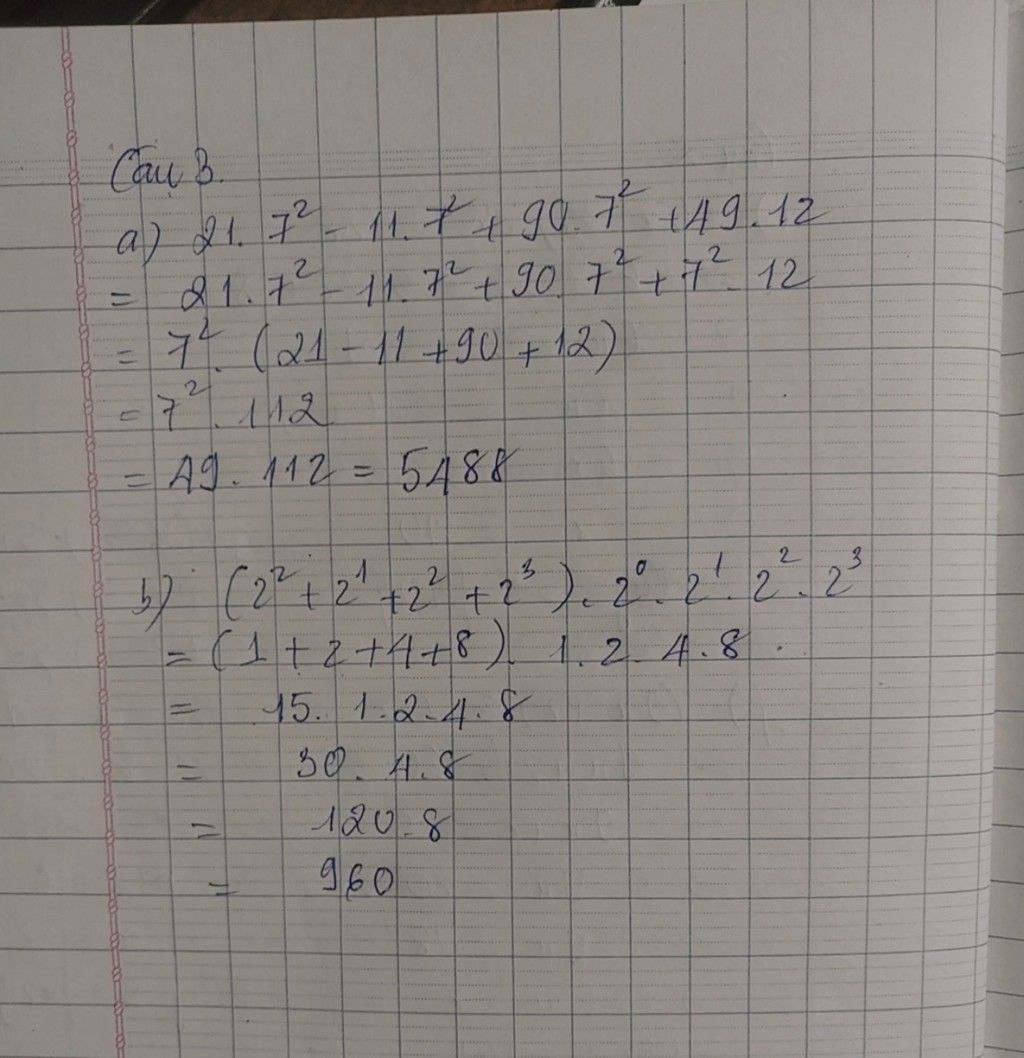 Câu 3.
a) 21. 7² - 11. 7² + 90. 7² + 49. 12
= 21. 7² - 11. 7² + 90. 7² + 7². 12
= 7². (21 - 11 + 90 + 12)
= 7². 112
= 49. 112 = 5488
b) (2² + 2¹ + 2² + 2³). 2⁰. 2¹. 2². 2³
= (1 + 2 + 4 + 8). 1. 2. 4. 8
= 15. 1. 2. 4. 8
= 30. 4. 8
= 120. 8
= 960